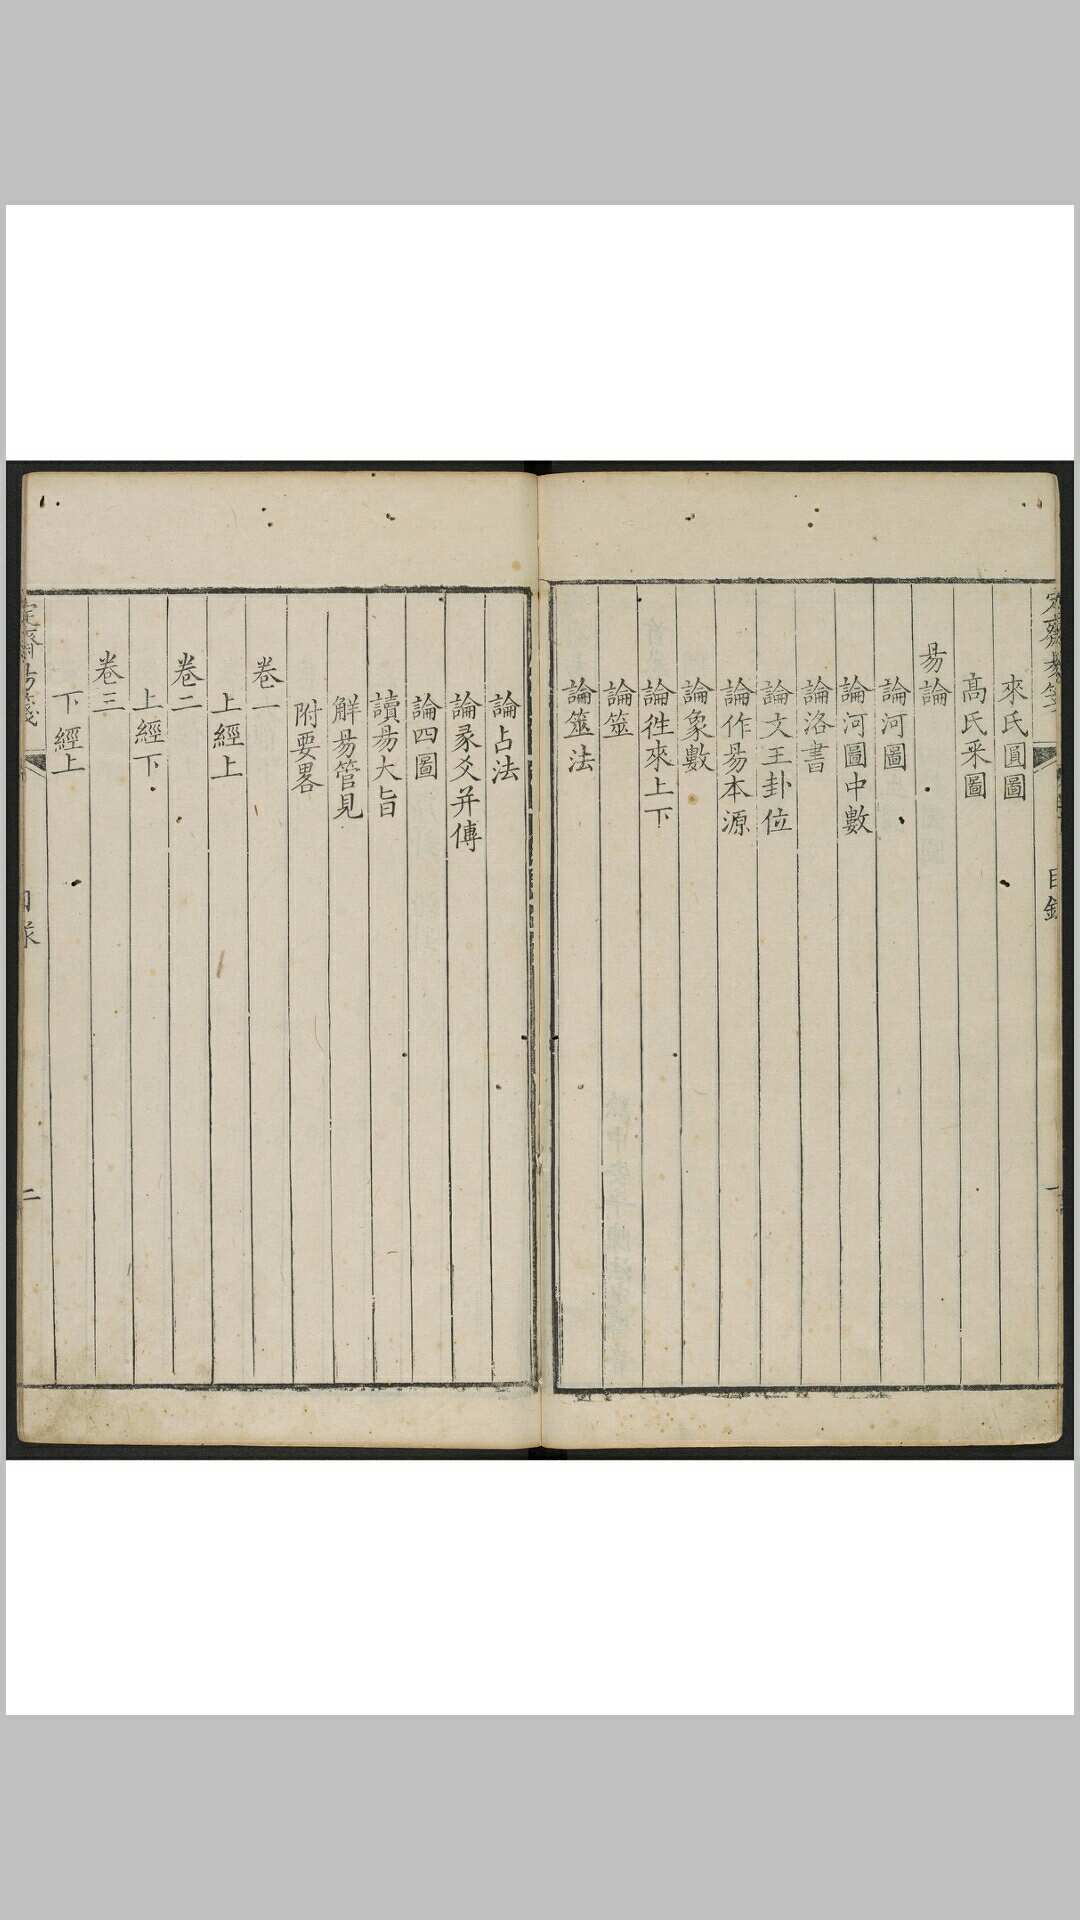 來氏圓圖
髙氏釆圖
易論
論河圖
論河圖中數
論洛書
論文王卦位
論作易本源
論象數
論徃來上下
論筮
論筮法
論占法
論彖爻并傳
論四圖
讀易大旨
觧易管見
附要畧
卷一
上經上
卷二
上經下
卷三
下經上
二